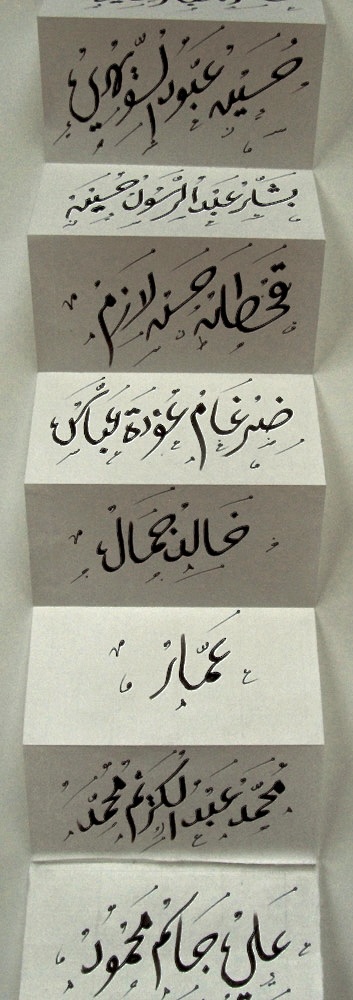 حسين عبود الشويهدي
بشار عبد الرسول حسين
قحطان حسن لازم
ضرغام عودة عباس
خالد جمال
عمار
محمد عبد الكريم محمد
علي جاكم محمود